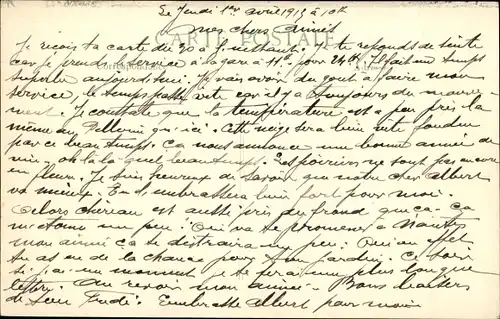 Le Jeudi 1er avril 1915 à 10h
mes chers aimés
CARTE POSTALE
Je reçois ta carte du 30 à l'instant. Je te reponds de suite
car je prends le service à la gare à 11h pour 24h. Il fait un temps
superbe aujourd'hui. Je vais avoir du gout à faire mon
service, le temps passe vite car il y a toujours du mouve-
ment. Je constate que la température est à peu près la
même au qu'ici. Cette neige sera bien vite fondue
par ce beau temps. Ca nous annonce une bonne année de
vin, oh la la quel beau temps. Les poiriers ne sont pas encore
en fleurs. Je suis heureux de savoir que notre cher Albert
va mieux. Tu l'embrassera bien fort pour moi.
Alors chéreau est aussi pris du froid que ça - ça
m'étonne un peu. Qui va se promener à Nantes
mon aimé ça se distraira un peu. Oui en effet
tu as eu de la chance pour ton jardin. Ce soir
si j'ai un moment je te ferai une plus longue
lettre. Au revoir mon aimée. Bons baisers
de ton Embrasse Albert pour moi